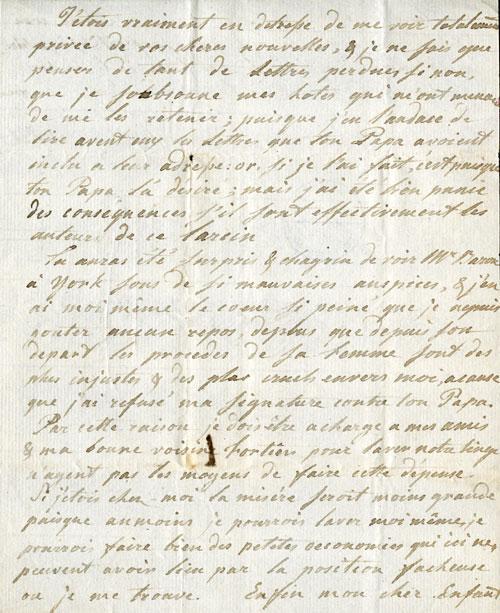 J'etois vraiment en detresse de me voir totalement
privée de vos cheres nouvelles, & je ne sais que
penser de tant de Lettres perdues, si non,
que je soubsonne mes hotes qui m'ont menacé
de me les retenir; puisque j'eu l'audase de
lire avent eux les Lettres que ton Papa avoient
inclu a leur adresse: or, si je l'ai fait, c'est puisque
ton Papa l'a desiré; mais j'ai été bien punie
des conséquences s'il sont effectivement les
auteurs de ce larcin
Tu auras été surpris & chagrin de voir Mr
à York sous de si mauvaises auspices, & j'en
ai moi même le coeur si peiné que je ne puis
gouter aucun repos, depuis que depuis son
depart les procedés de sa femme sont des
plus injustes & des plus cruels envers moi, a cause
que j'ai refusé ma signature contre ton Papa.
Par cette raison je dois être a charge a mes amis
& ma bonne voisine pour laver notre linge
n'ayent pas les moyens de faire cette dépense.
Si j'etois chez moi la misère seroit moins grande
puisque au moins je pourrois laver moi même, je
pourrois faire bien des petites oeconomies qui ici ne
peuvent avoir lieu par la position facheuse
ou je me trouve. Enfin mon cher Enfant